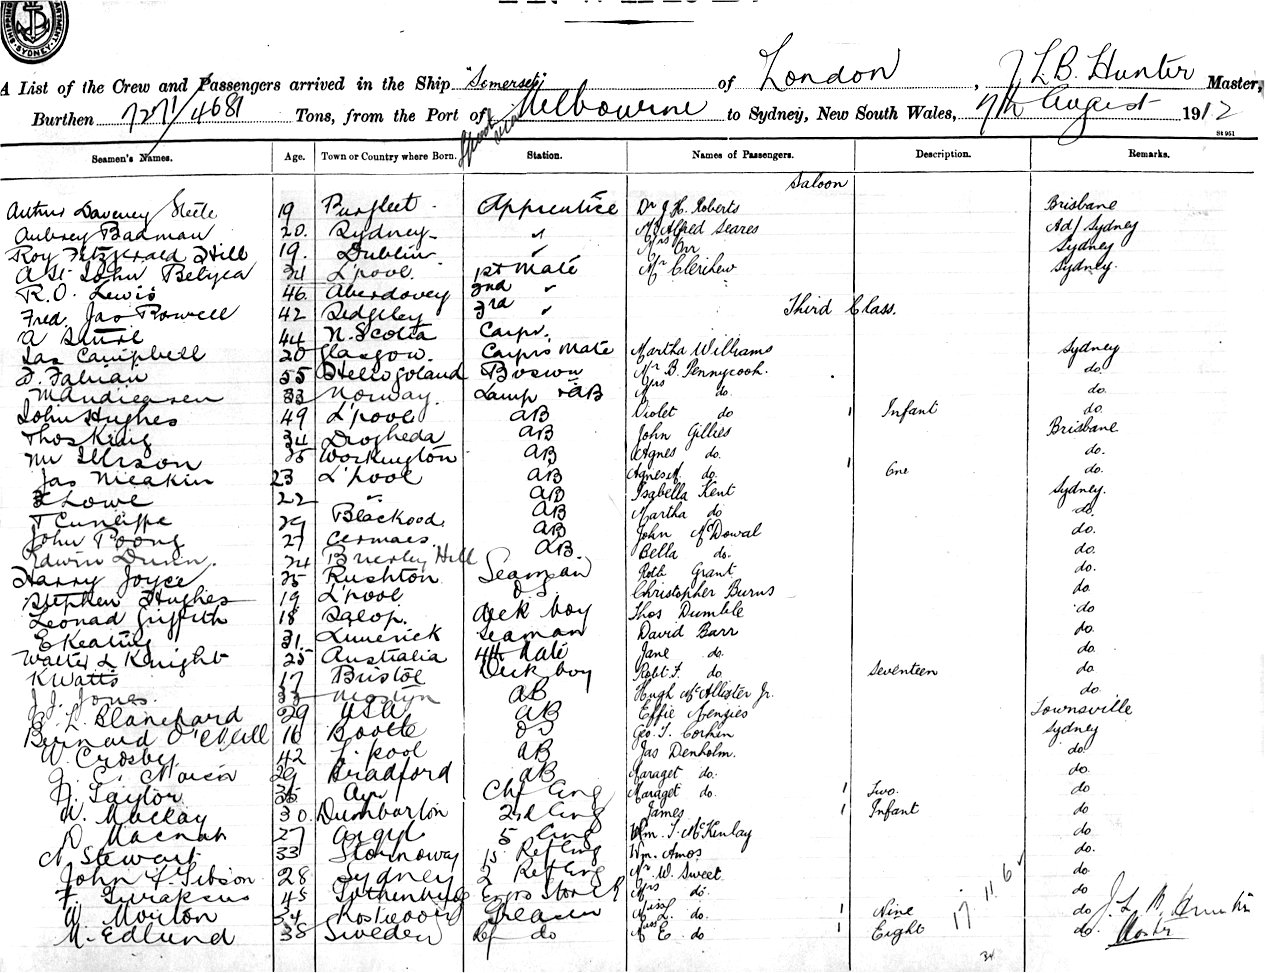 SHIPPING DEPARTMENT. SYDNEY
A List of the Crew and Passengers arrived in the Ship "Somerset" of London, J L. B. Hunter Master,
Burthen 7271/4681 Tons, from the Port of Melbourne to Sydney, New South Wales, 7th August 1912
St 951
Seamen's Names. Age. Town or Country where Born. Station. Names of Passengers. Description. Remarks.
Saloon
Arthur Daveney Steele 19 Purfleet Apprentice Dr J. H. Roberts Brisbane
Aubrey Badman 20. Sydney " Mr Alfred Seares Ad/ Sydney
Roy Fitzgerald Hill 19. Dublin " Mrs Orr Sydney
A St John Betyea 31 L'pool 1st Mate Mr Clerihew Sydney.
R. O. Lewis 46 Aberdovey 2nd "
Fred. Jas Powell 42 Sedgley 3rd " Third Class.
44 N. Scotia Carpr.
Jas Campbell 20 Glasgow. Carprs Mate Martha Williams Sydney
F. Fabian 55 Heligoland Bosun Mr B. Pennycook. do.
33 Norway. Lamp & AB Mrs do. do
John Hughes 49 L'pool AB Violet do 1 Infant do.
Thos King 34 Drogheda AB John Gillies Brisbane
Wm Illison 25 Workington AB Agnes do. do.
Jas Meakin 23 L'pool AB Agnes M. do. 1 One do.
Lowe 22 " AB Isabella Kent Sydney.
T Cunliffe 29 Blackood AB Martha do do.
John Poong 27 Cermaes AB John McDowal do.
Edwin Dunn. 24 Brierley Hill AB. Bella do. do.
Harry Joyce 25 Rushton Seaman Robt Grant do.
Stephen Hughes 19 L'pool O.S. Christopher Burns do
Leonad Griffith 18 Salop. Deck boy Thos Dumble do
E Keating 31. Limerick Seaman David Barr do.
Walter L Knight 25 Australia 4th Mate Jane do. do.
K Watts 17 Bristol Deck boy Robt F. do Seventeen do.
J. J. Jones. 33 Mostyn AB Hugh McAllister Jr. do
L. Blanchard 29 USA AB Effie Menzies Townsville
Bernard O'Neill 16 Bootle OS Geo. T. Corkin Sydney
W. Crosby 42 L'pool AB Jas Denholm. do
29 Bradford AB Maraget do. do.
Taylor 36 Ayr Chf Eng Maraget do. 1 Two. do
W. Mackay 30. Dumbarton 2nd Eng James 1 Infant do
D Macnab 27 Argyl 5 Eng Wm. T. McKinlay do.
N Stewart 33 Stornoway 1s Ref Eng Wm. Amos do.
John F. Gibson 28 Sydney 2 Ref Eng Mr W. Sweet do.
45 Gothenburg Engrs Store K Mrs do. do
W. Morton 34 Greaser Miss L. do. 1 Nine do
M. Edlund 38 Sweden Ref do Miss E. do 1 Eight do.
17. 11. 6
J. L. B. Hunter
Master
34